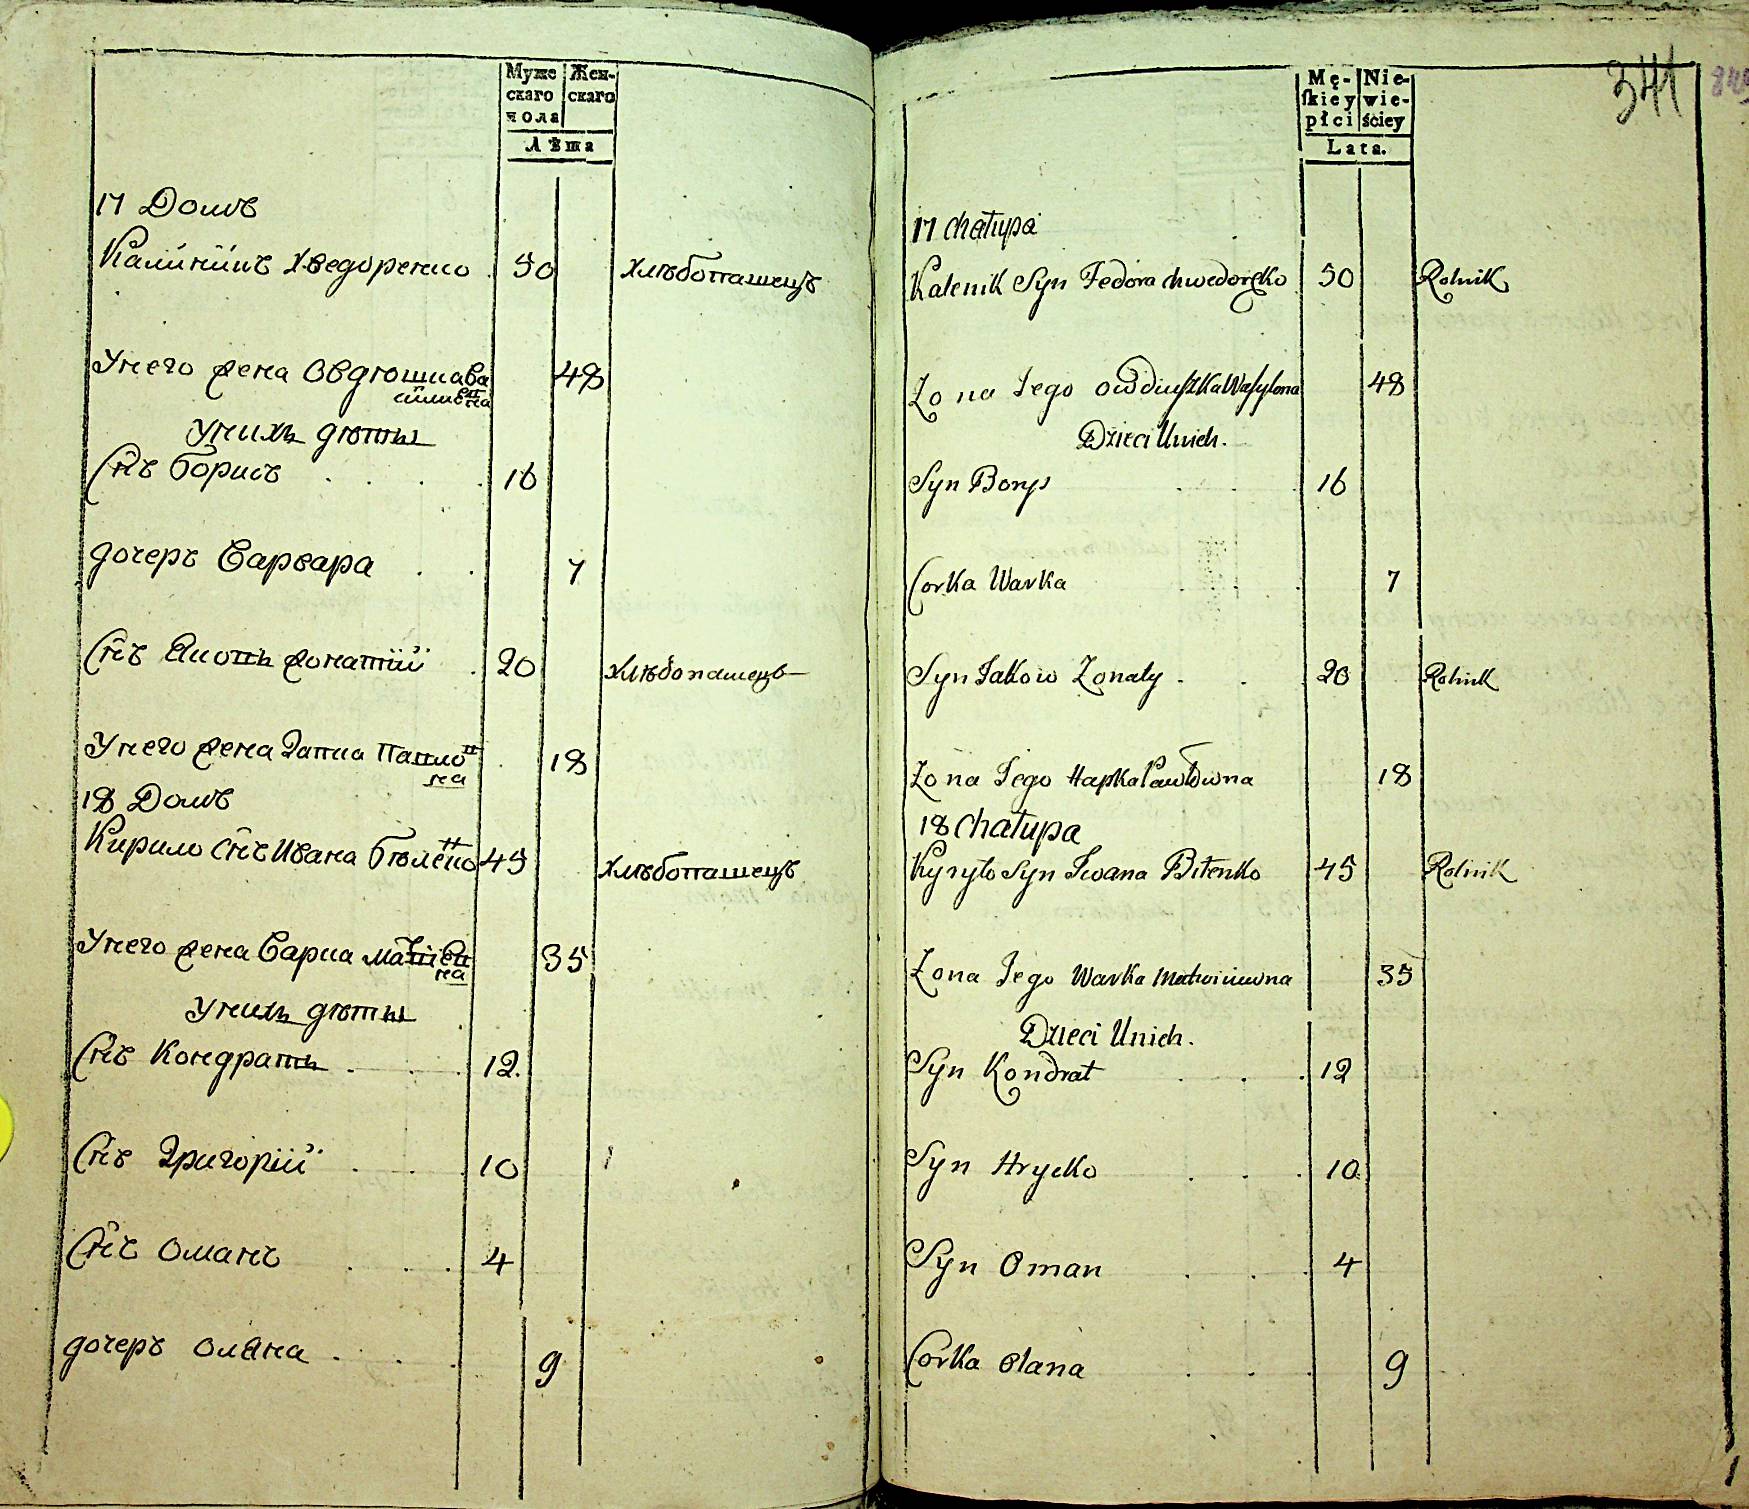 Муже
скаго
пола
Жен-
скаго
Лѣта
17 Домъ
Калиникъ Хведоренко . 50 Хлѣбопашецъ
Унего жена Овдюшка Ва
силиевна 48
Унихъ дѣти
Сн̃ъ Борисъ . . . . 16
дочеръ Варвара . . 7
Сн̃ъ Якопъ жонатій . 20 Хлѣбопашецъ
Унего жена Гапка Павло
на . 18
18 Домъ
Кирило Сн̃ъ Ивана Бѣленко 45 Хлѣбопашецъ
Унего жена Варка Матвіев
на 35
Унихъ дѣти
Сн̃ъ Кондратъ . . . 12.
Сн̃ъ Григорій . . . 10
Сн̃ъ Оманъ . . . 4
дочеръ Оляна . . . 9
341
Mę-
skiey
płci
Nie-
wie-
ściey
Lata.
17 Chałupa
Kalenik Syn Fedora Chwedoręko 50 Rolnik
Zona Jego Owdiuszka Wasylona 48
Dzieci Unich.
Syn Borys . . . 16
Corka Warka . . . 7
Syn Jakow Zonaty . . . 20 Rolnik
Zona Jego Hapka Pawłowna 18
18 Chałupa
Kyryło Syn Iwana Bilenko 45 Rolnik
Zona Jego Warka Matwiiewna 35
Dzieci Unich.
Syn Kondrat . . . 12
Syn Hrycko . . . 10
Syn Oman . . . 4
Corka Olana . . . 9